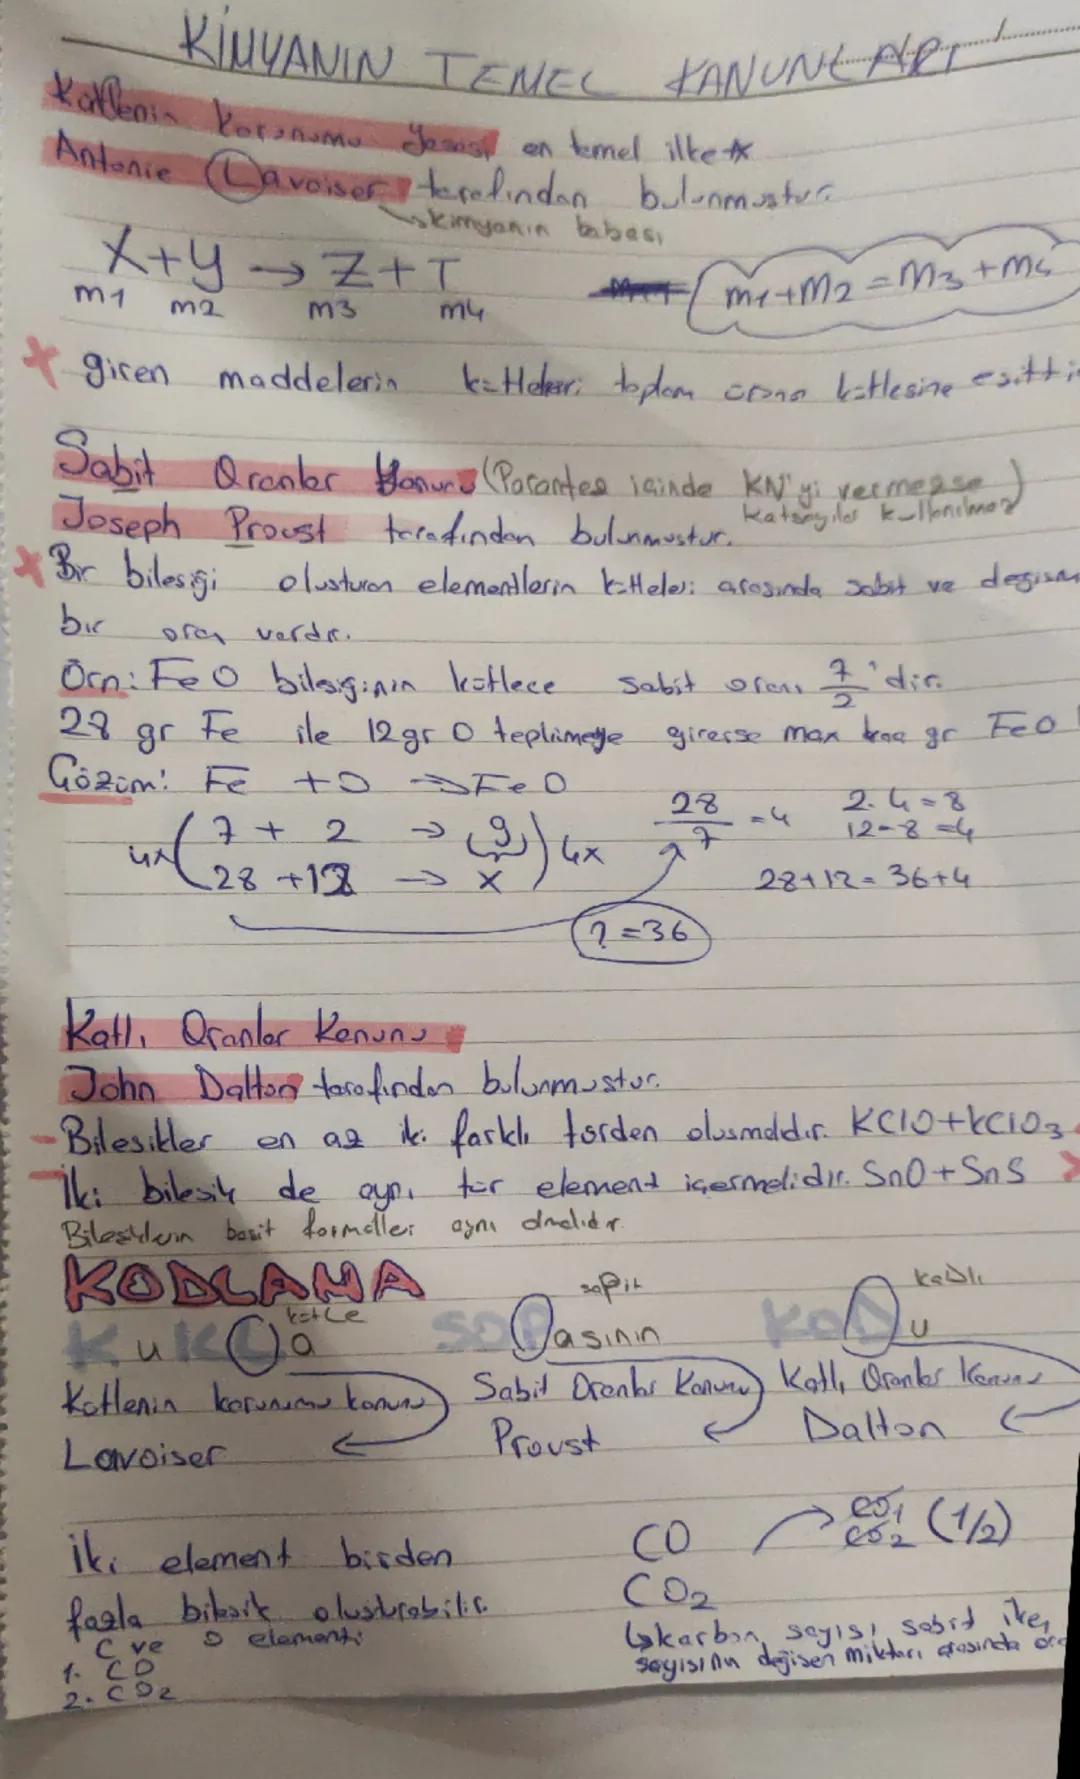 KİMYANIN TEMEL KANUNLARI
Kütlenin Korunumu Yasası en temel ilke
Antonie Lavoiser tarafından bulunmuştur.
kimyanın babası
X+Y → Z+T
m1 m2 m3 m4
m1+m2=m3+m4
giren maddelerin kütleleri toplam ürünün kütlesine eşittir
Sabit Oranlar Kanunu (Parantez içinde KN'yi vermezse
katsayılar kullanılmaz)
Joseph Proust tarafından bulunmuştur.
Bir bileşiği oluşturan elementlerin kütleleri arasında sabit ve
bir oran vardır.
Örn: FeO bileşiğinin kütlece sabit oranı 7/2'dir.
28 gr Fe ile 12gr O tepkimeye girerse max kaç gr FeO
Çözüm: Fe + O → FeO
4x (7 + 2 → 9) 4x
28 + 12 → x
28/7 = 4
2.4=8
12-8=4
28+12=36+4
?=36
Katlı Oranlar Kanunu
John Dalton tarafından bulunmuştur.
- Bileşikler en az iki farklı türden oluşmalıdır. KClO+KClO3
- İki bileşik de aynı tür element içermelidir. SnO+SnS
Bileşiklerin basit formülleri aynı olmalıdır.
KODLAMA
kütle sapit katlı
KuKLa SOPasının KODu
Kütlenin korunumu kanunu Sabit Oranlar Kanunu Katlı Oranlar Kanunu
Lavoiser Proust Dalton
İki element birden
fazla bileşik oluşturabilir.
C ve O elementi
1. CO
2. CO2
CO
CO2
CO1
CO2 (1/2)
karbon sayısı sabit iken
sayısının değişen miktarı arasında